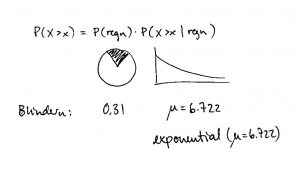 P(X>x) = P(regn) · P(X>x | regn)
Blindern: 0.31 μ = 6.722
exponential (μ = 6.722)